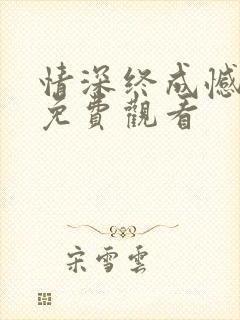 情深终成憾
免費觀看
宋雪雲